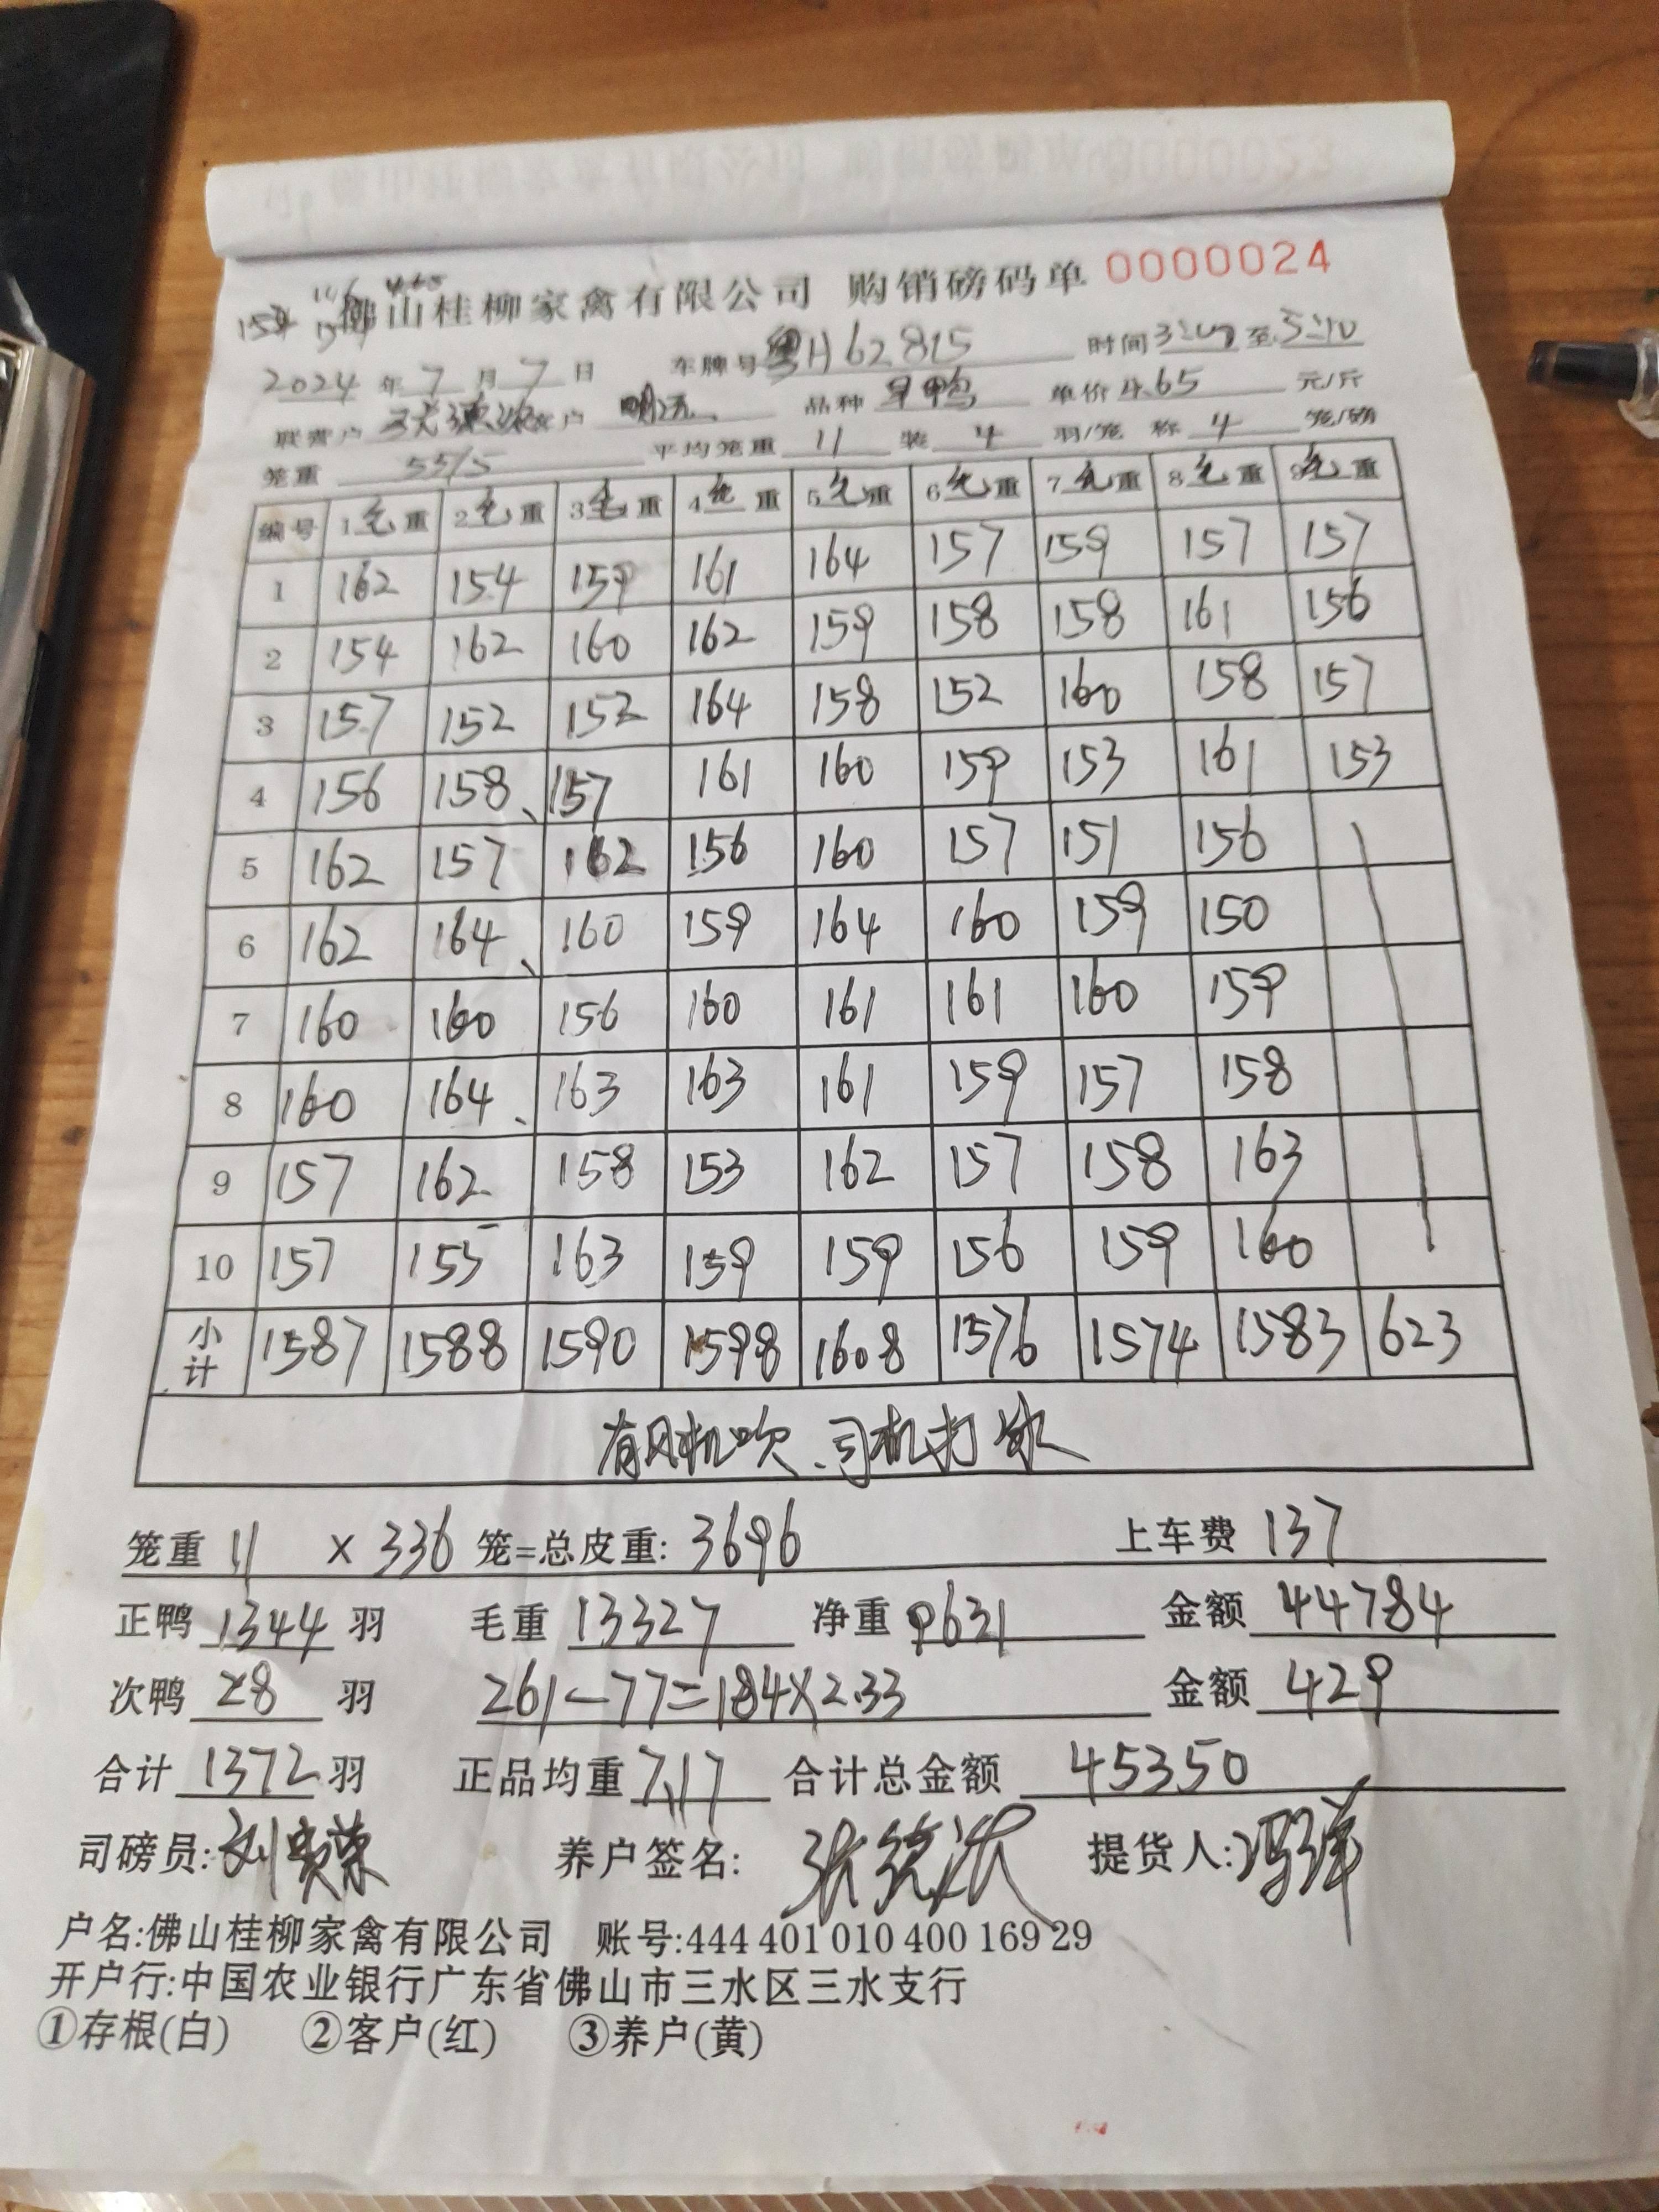 佛山桂柳家禽有限公司 购销磅码单 0000024
2024 年 7 月 7 日 车牌号 粤H62815 时间 至 5:10
联营户 客户 明远 品种 旱鸭 单价 4.65 元/斤
笼重 55/5 平均笼重 11 装 4 羽/笼 称 4 笼/磅
编号 1 毛 重 2 毛 重 3 毛 重 4 毛 重 5 毛 重 6 毛 重 7 毛 重 8 毛 重 9 毛 重
1 162 154 159 161 164 157 159 157 157
2 154 162 160 162 159 158 158 161 156
3 157 152 152 164 158 152 160 158 157
4 156 158 157 161 160 159 153 161 153
5 162 157 162 156 160 157 151 156
6 162 164 160 159 164 160 159 150
7 160 160 156 160 161 161 160 159
8 160 164 163 163 161 159 157 158
9 157 162 158 153 162 157 158 163
10 157 155 163 159 159 156 159 160
小计 1587 1588 1590 1598 1608 1576 1574 1583 623
有风机吹、司机打水
笼重 11 × 336 笼=总皮重: 3696 上车费 137
正鸭 1344 羽 毛重 13327 净重 9631 金额 44784
次鸭 28 羽 261-77=184×2.33 金额 429
合计 1372 羽 正品均重 7.17 合计总金额 45350
司磅员: 养户签名: 提货人:
户名:佛山桂柳家禽有限公司 账号:444 401 010 400 169 29
开户行:中国农业银行广东省佛山市三水区三水支行
①存根(白) ②客户(红) ③养户(黄)